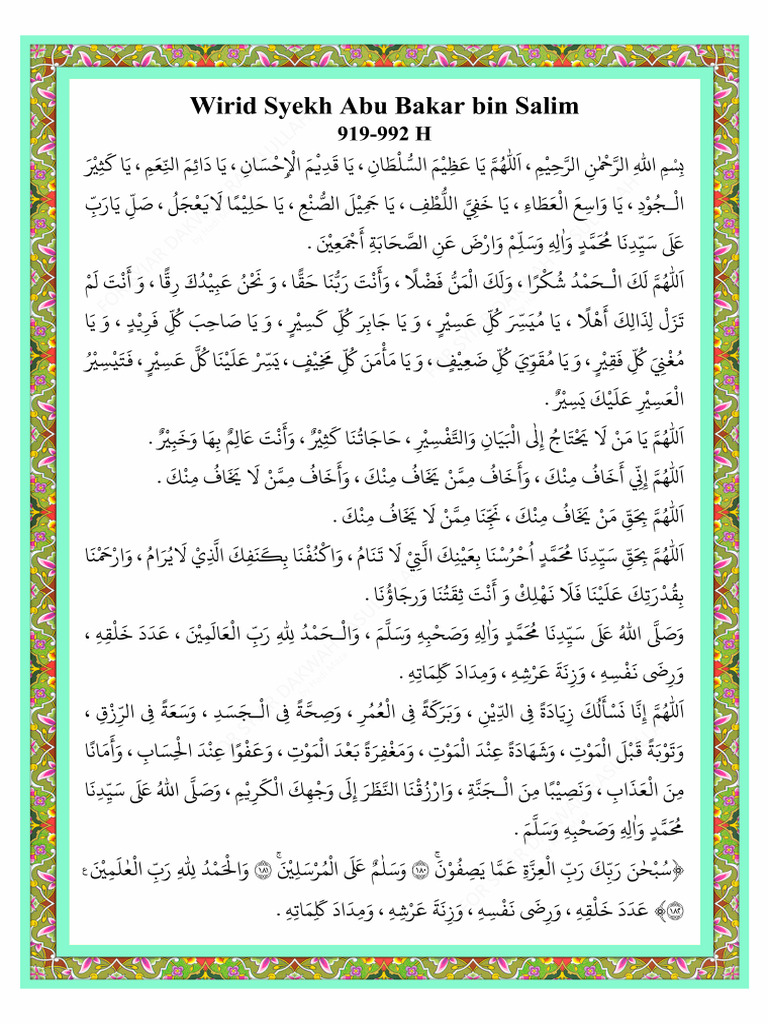 Wirid Syekh Abu Bakar bin Salim
919-992 H
بِسْمِ اللهِ الرَّحْمٰنِ الرَّحِيْمِ ، اَللّٰهُمَّ يَا عَظِيْمَ السُّلْطَانِ ، يَا قَدِيْمَ الْإِحْسَانِ ، يَا دَائِمَ النِّعَمِ ، يَا كَثِيْرَ
الْـجُوْدِ ، يَا وَاسِعَ الْعَطَاءِ ، يَا خَفِيَّ اللُّطْفِ ، يَا جَمِيْلَ الصُّنْعِ ، يَا حَلِيْمًا لَايَعْجَلُ ، صَلِّ يَارَبِّ
عَلَى سَيِّدِنَا مُحَمَّدٍ وَاٰلِهِ وَسَلِّمْ وَارْضَ عَنِ الصَّحَابَةِ أَجْمَعِيْنَ .
اَللّٰهُمَّ لَكَ الْـحَمْدُ شُكْرًا ، وَلَكَ الْمَنُّ فَضْلًا ، وَأَنْتَ رَبُّنَا حَقًّا ، وَ نَحْنُ عَبِيْدُكَ رِقًّا ، وَ أَنْتَ لَمْ
تَزَلْ لِذَالِكَ أَهْلًا ، يَا مُيَسِّرَ كُلِّ عَسِيْرٍ ، وَ يَا جَابِرَ كُلِّ كَسِيْرٍ ، وَ يَا صَاحِبَ كُلِّ فَرِيْدٍ ، وَ يَا
مُغْنِيَ كُلِّ فَقِيْرٍ ، وَ يَا مُقَوِّيَ كُلِّ ضَعِيْفٍ ، وَ يَا مَأْمَنَ كُلِّ مَخِيْفٍ ، يَسِّرْ عَلَيْنَا كُلَّ عَسِيْرٍ ، فَتَيْسِيْرُ
الْعَسِيْرِ عَلَيْكَ يَسِيْرٌ .
اَللّٰهُمَّ يَا مَنْ لَا يَحْتَاجُ إِلٰى الْبَيَانِ وَالتَّفْسِيْرِ ، حَاجَاتُنَا كَثِيْرٌ ، وَأَنْتَ عَالِمٌ بِهَا وَخَبِيْرٌ .
اَللّٰهُمَّ إِنِّي أَخَافُ مِنْكَ ، وَأَخَافُ مِمَّنْ يَخَافُ مِنْكَ ، وَأَخَافُ مِمَّنْ لَا يَخَافُ مِنْكَ .
اَللّٰهُمَّ بِحَقِّ مَنْ يَخَافُ مِنْكَ ، نَجِّنَا مِمَّنْ لَا يَخَافُ مِنْكَ .
اَللّٰهُمَّ بِحَقِّ سَيِّدِنَا مُحَمَّدٍ اُحْرُسْنَا بِعَيْنِكَ الَّتِيْ لَا تَنَامُ ، وَاكْنُفْنَا بِكَنَفِكَ الَّذِيْ لَايُرَامُ ، وَارْحَمْنَا
بِقُدْرَتِكَ عَلَيْنَا فَلَا نَهْلِكْ وَ أَنْتَ ثِقَتُنَا وَرَجَاؤُنَا .
وَصَلَّى اللهُ عَلَى سَيِّدِنَا مُحَمَّدٍ وَاٰلِهِ وَصَحْبِهِ وَسَلَّمَ ، وَالْـحَمْدُ لِلهِ رَبِّ الْعَالَمِيْنَ ، عَدَدَ خَلْقِهِ ،
وَرِضَى نَفْسِهِ ، وَزِنَةَ عَرْشِهِ ، وَمِدَادَ كَلِمَاتِهِ .
اَللّٰهُمَّ إِنَّا نَسْأَلُكَ زِيَادَةً فِى الدِّيْنِ ، وَبَرَكَةً فِى الْعُمُرِ ، وَصِحَّةً فِى الْـجَسَدِ ، وَسَعَةً فِى الرِّزْقِ ،
وَتَوْبَةً قَبْلَ الْمَوْتِ ، وَشَهَادَةً عِنْدَ الْمَوْتِ ، وَمَغْفِرَةً بَعْدَ الْمَوْتِ ، وَعَفْوًا عِنْدَ الْحِسَابِ ، وَأَمَانًا
مِنَ الْعَذَابِ ، وَنَصِيْبًا مِنَ الْـجَنَّةِ ، وَارْزُقْنَا النَّظَرَ إِلَى وَجْهِكَ الْكَرِيْمِ ، وَصَلَّى اللهُ عَلَى سَيِّدِنَا
مُحَمَّدٍ وَاٰلِهِ وَصَحْبِهِ وَسَلَّمَ .
﴿سُبْحٰنَ رَبِّكَ رَبِّ الْعِزَّةِ عَمَّا يَصِفُوْنَۚ ۝١٨٠ وَسَلٰمٌ عَلَى الْمُرْسَلِيْنَۚ ۝١٨١ وَالْحَمْدُ لِلهِ رَبِّ الْعٰلَمِيْنَ ࣖ
۝١٨٢﴾ عَدَدَ خَلْقِهِ ، وَرِضَى نَفْسِهِ ، وَزِنَةَ عَرْشِهِ ، وَمِدَادَ كَلِمَاتِهِ .